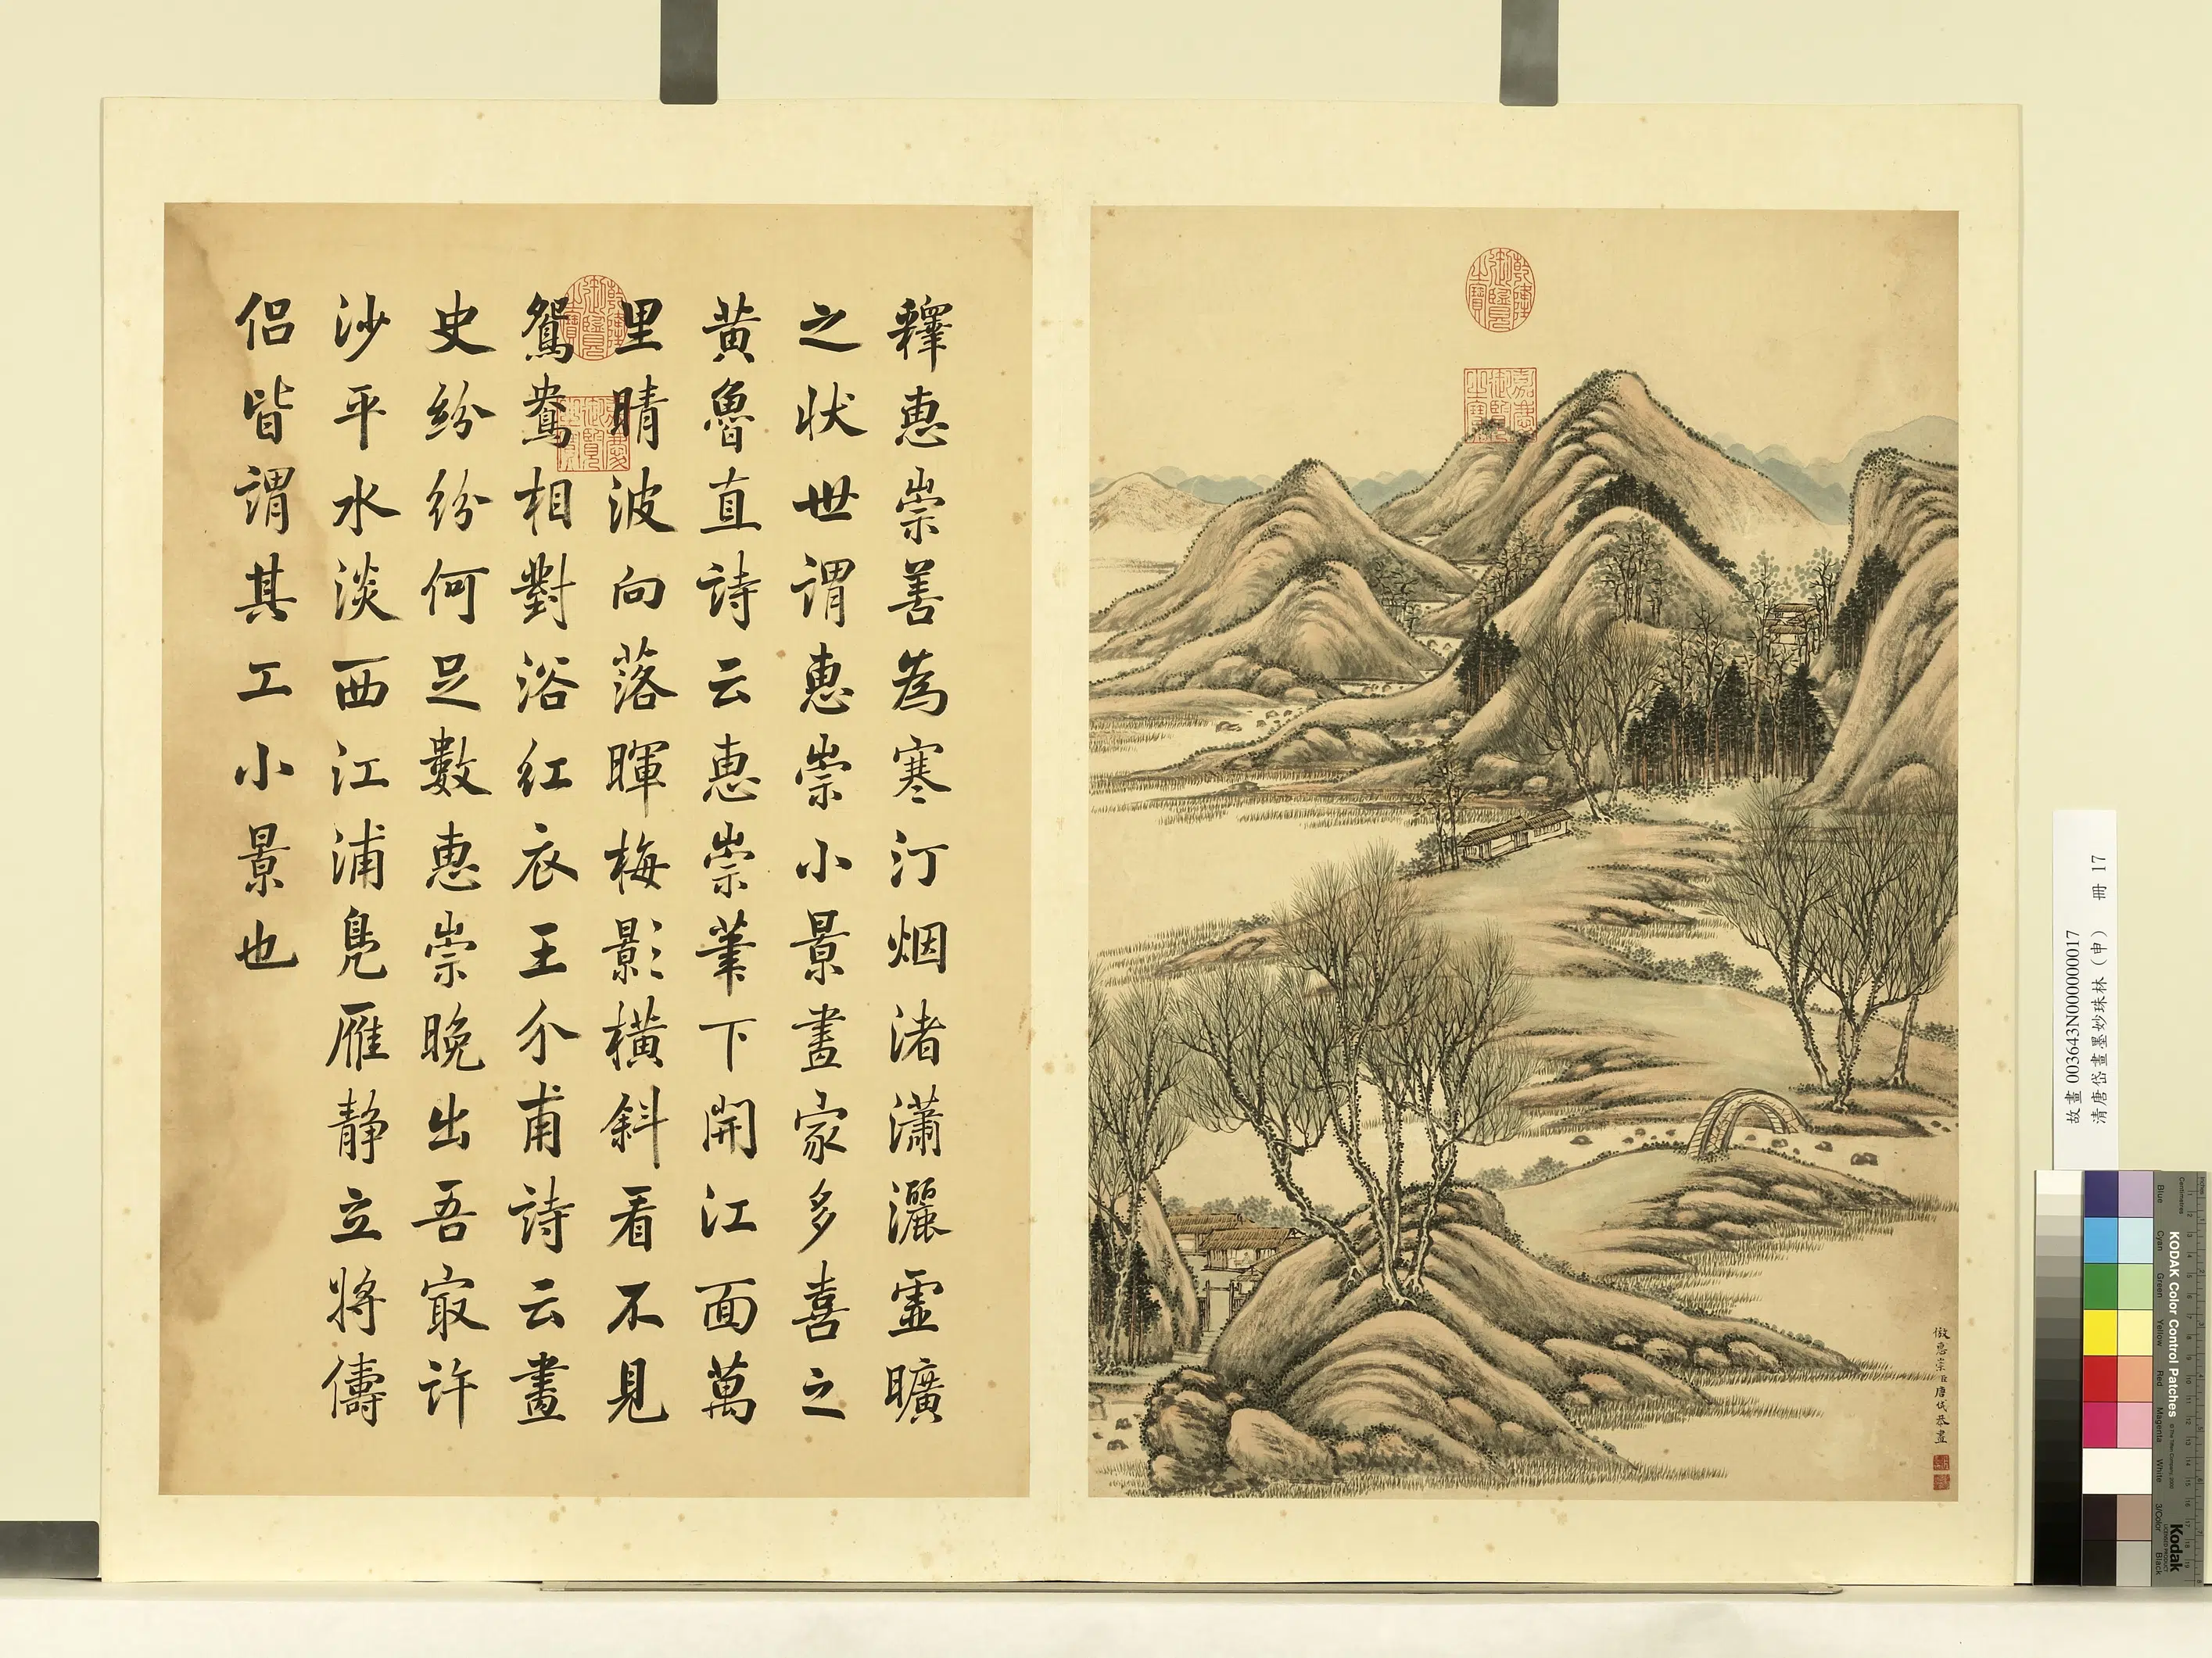 釋惠崇善為寒汀烟渚瀟灑虛曠
之狀世謂惠崇小景畫家多喜之
黃魯直詩云惠崇筆下開江面萬
里晴波向落暉梅影橫斜看不見
鴛鴦相對浴紅衣王介甫詩云畫
史紛紛何足數惠崇晚出吾㝡許
沙平水淡西江浦鳧雁靜立將儔
侶皆謂其工小景也
乾隆御覽之寶
嘉慶御覽之寶
乾隆御覽之寶
嘉慶御覽之寶
倣惠崇臣唐岱恭畫
故畫 003643N000000017
清唐岱畫墨妙珠林（申） 冊 17
KODAK Color Control Patches
Blue
Cyan
Green
Yellow
Red
Magenta
White
3/Color
Black
Kodak
LICENSED PRODUCT
Inches
Centimetres